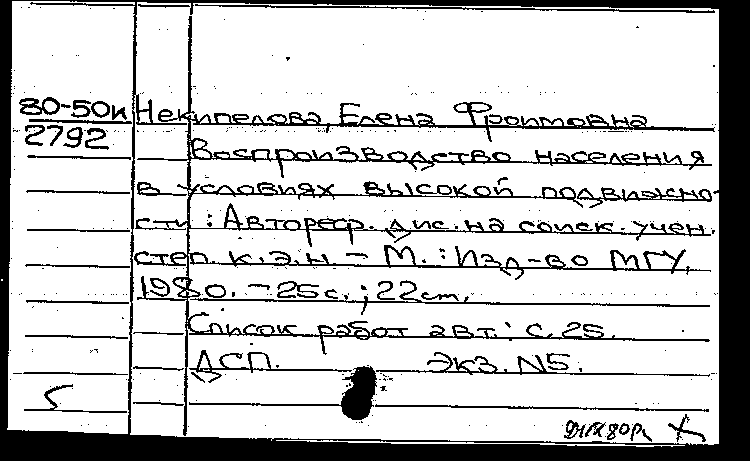 80-50к Некипелова, Елена Фроимовна
2792
Воспроизводство населения
в условиях высокой подвижно-
сти : Автореф. дис. на соиск. учен.
степ. к.э.н – М. : Изд-во МГУ,
1980. – 25с. ; 22см.
Список работ авт.: с. 25.
ДСП. Экз. N5.
5